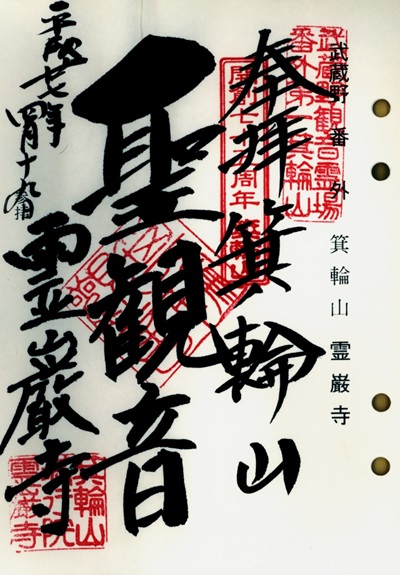 武蔵野番外 箕輪山 霊巌寺
武蔵野観音霊場
番外 箕輪山
奉拝 箕輪山
聖観音
霊巌寺
平成廿七年四月十九日
箕輪山
霊巌寺